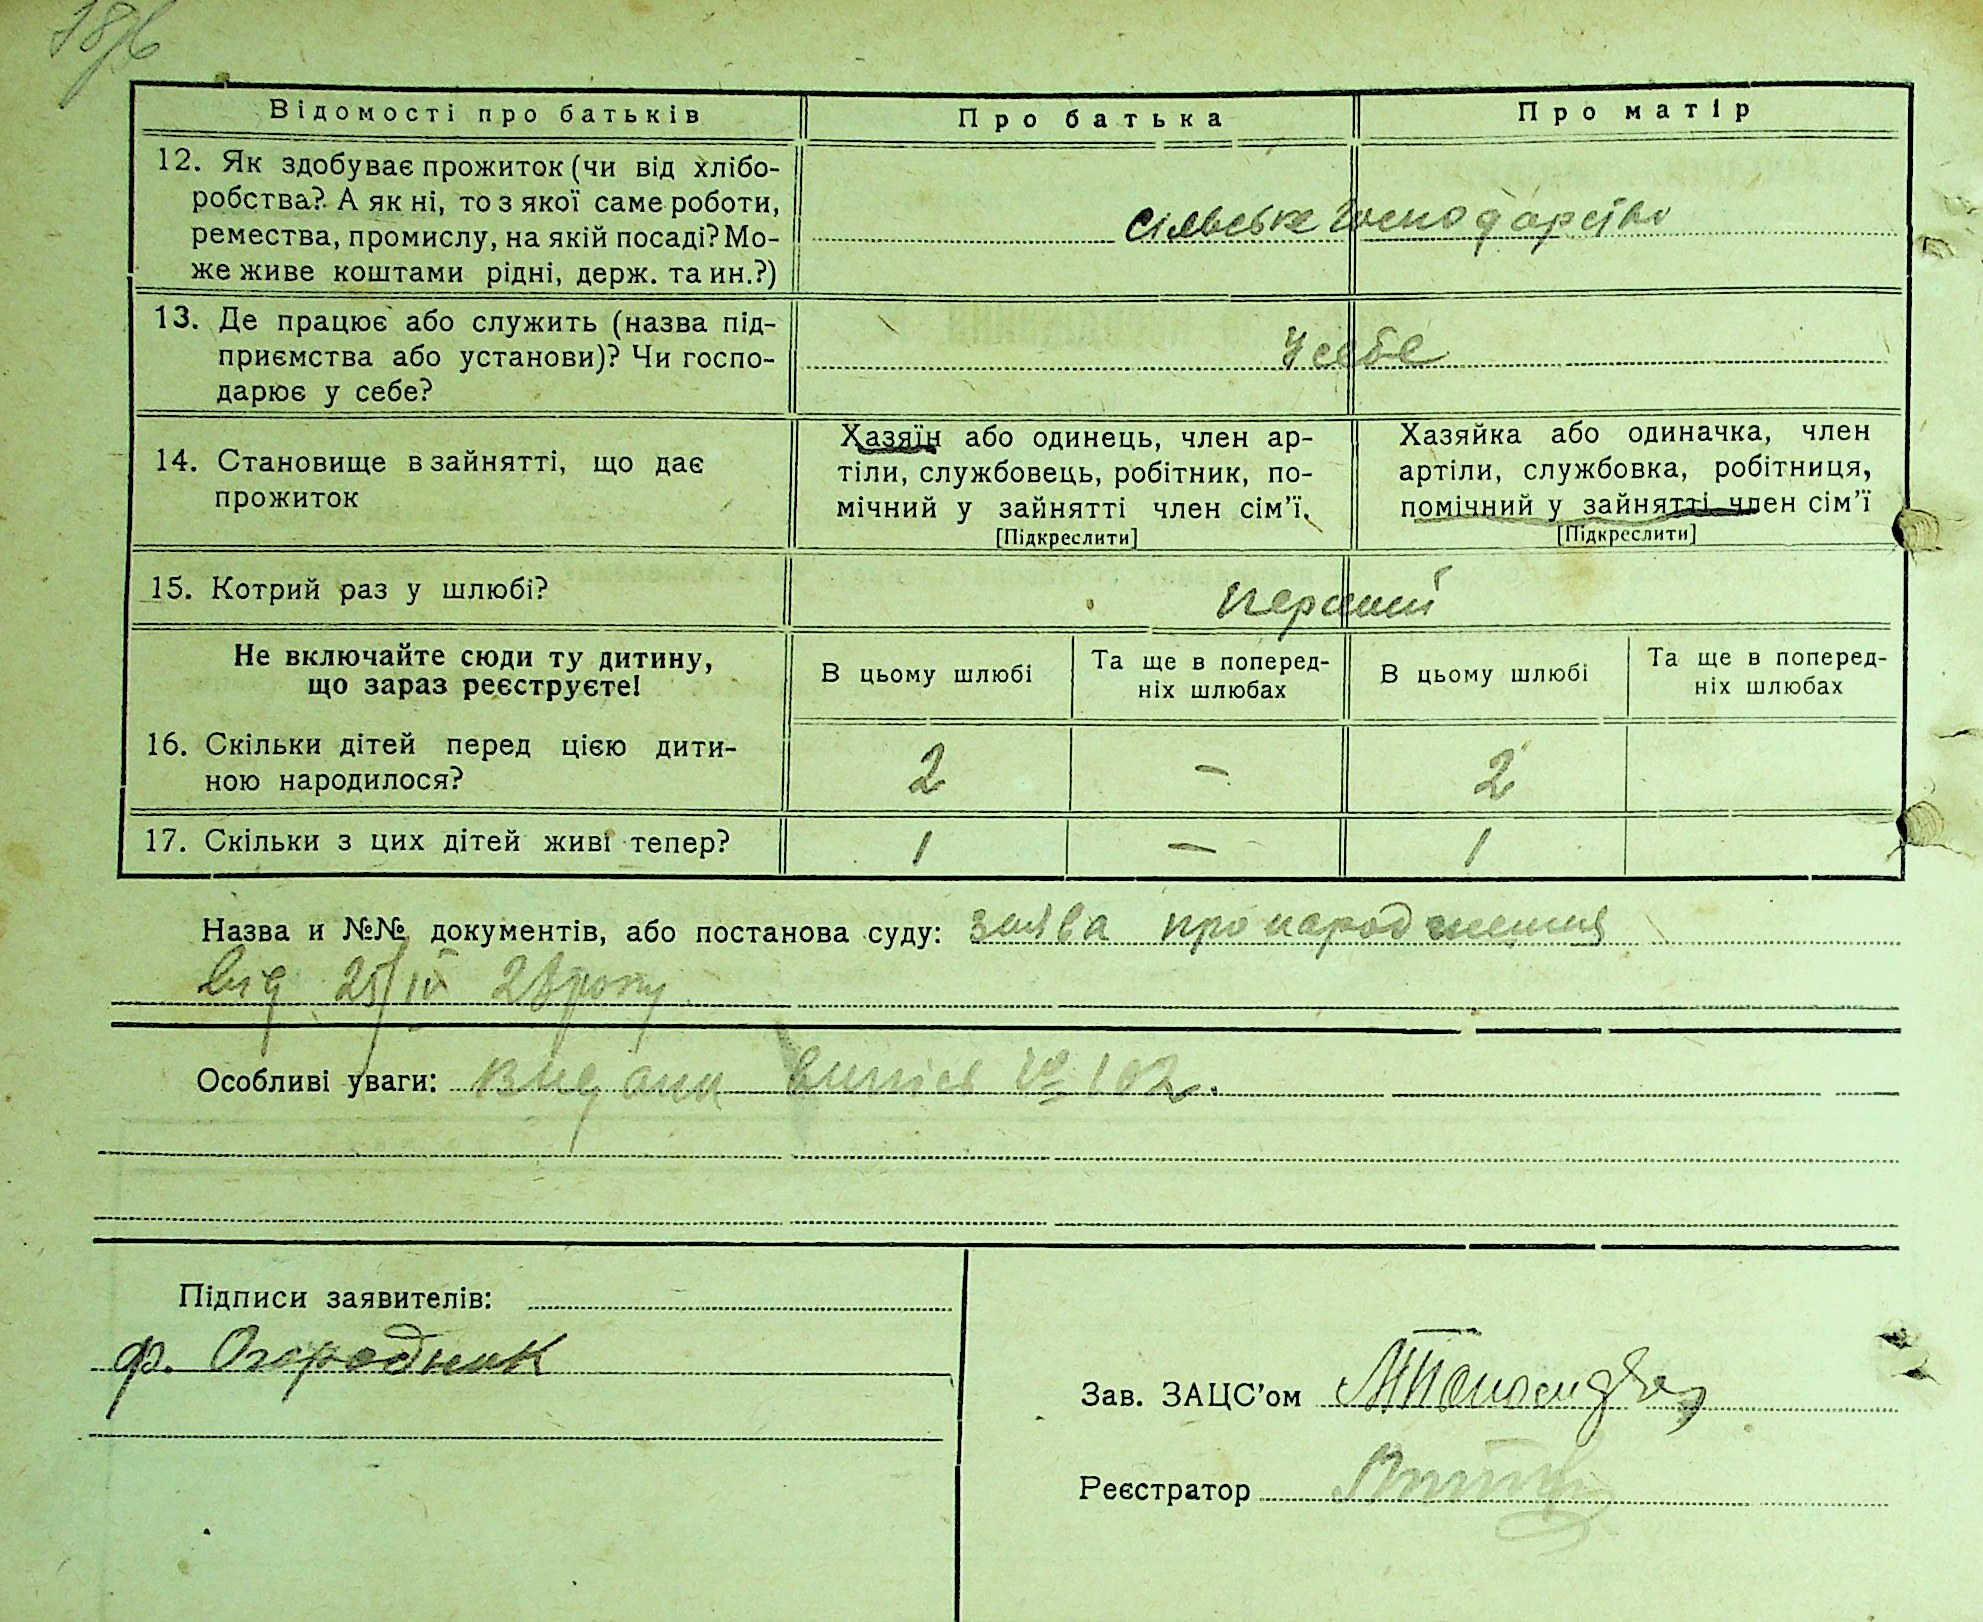 Відомості про батьків Про батька Про матір
12. Як здобуває прожиток (чи від хлібо-
робства? А як ні, то з якої саме роботи,
ремества, промислу, на якій посаді? Мо-
же живе коштами рідні, держ. та ин.?)
сільське господарство
13. Де працює або служить (назва під-
приємства або установи)? Чи госпо-
дарює у себе?
У себе
14. Становище в зайнятті, що дає
прожиток
Хазяїн або одинець, член ар-
тіли, службовець, робітник, по-
мічний у зайнятті член сім'ї.
[Підкреслити]
Хазяйка або одиначка, член
артіли, службовка, робітниця,
помічний у зайнятті член сім'ї
[Підкреслити]
15. Котрий раз у шлюбі?
перший
Не включайте сюди ту дитину,
що зараз реєструєте!
В цьому шлюбі
Та ще в поперед-
ніх шлюбах
В цьому шлюбі
Та ще в поперед-
ніх шлюбах
16. Скільки дітей перед цією дити-
ною народилося?
2 — 2
17. Скільки з цих дітей живі тепер?
1 — 1
Назва и №№ документів, або постанова суду: заява про народження
від 25/IV 28 року
Особливі уваги: видани випіс № 102.
Підписи заявителів:
Ф. Огородник
Зав. ЗАЦС'ом
Реєстратор